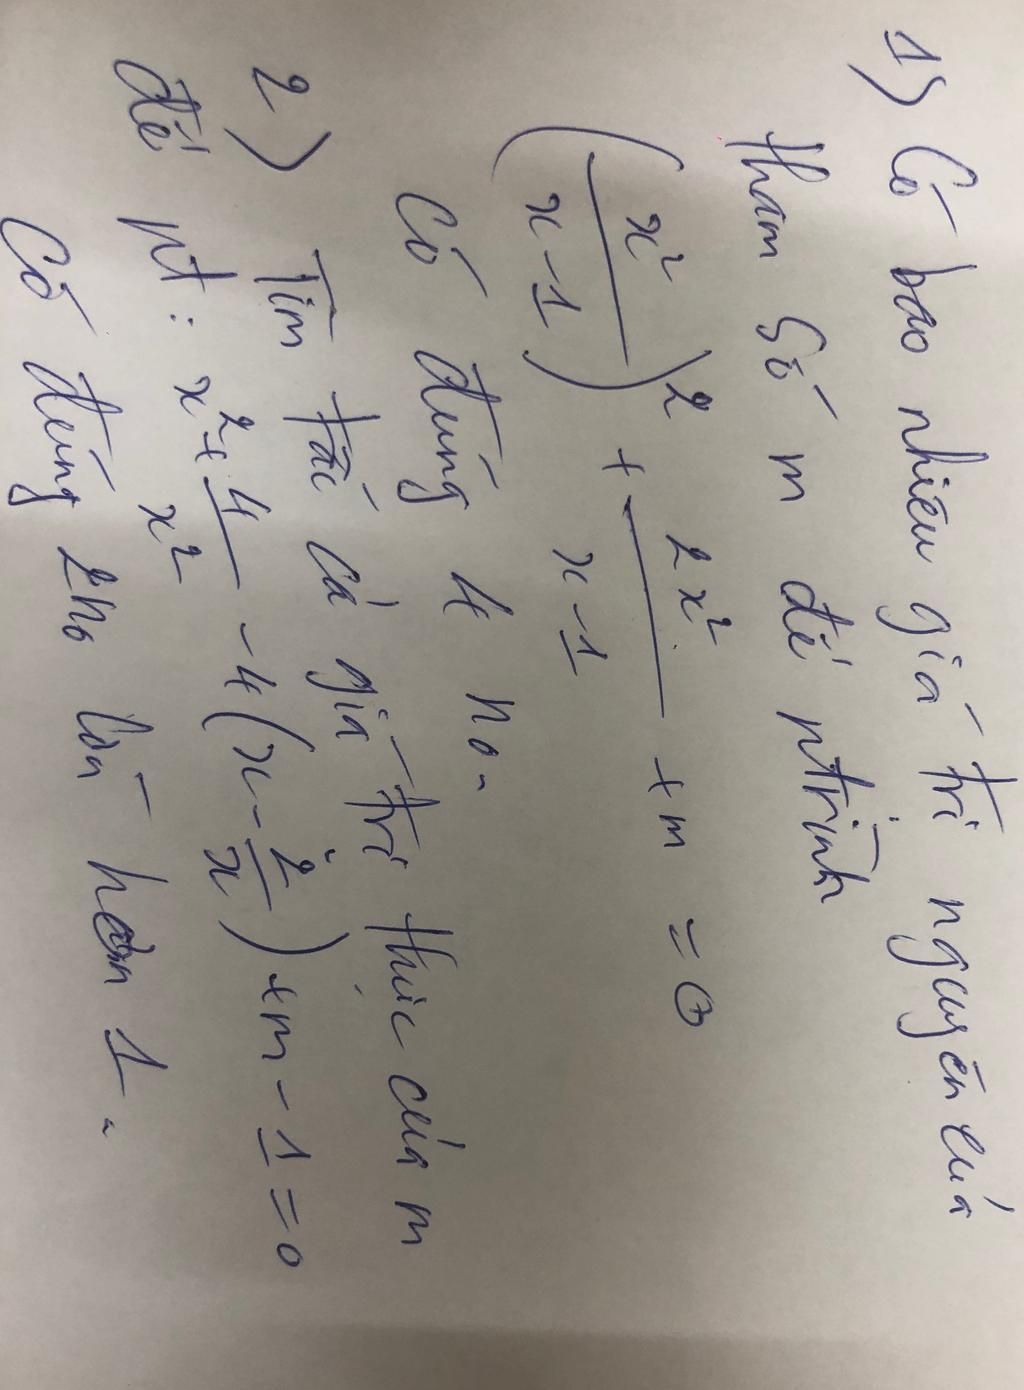 1) Có bao nhiêu giá trị nguyên của
tham số m để ptrình
(x²/(x-1))² + 2x²/(x-1) + m = 0
Có đúng 4 no.
2) Tìm tất cả giá trị thực của m
để pt: x² + 4/x² - 4(x - 2/x) + m - 1 = 0
Có đúng 2no lớn hơn 1.